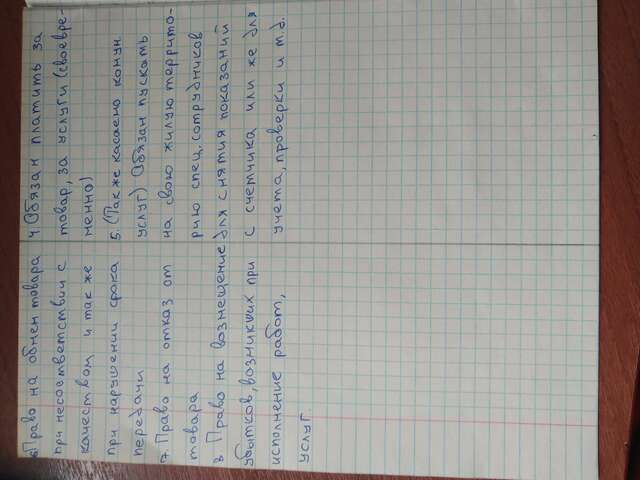 6. Право на обмен товара
при несоответствии с
качеством и так же
при нарушении срока
передачи
7. Право на отказ от
товара
8 Право на возмещение
убытков, возникших при
исполнение работ,
услуг.
4. Обязан платить за
товар, за услуги (своевре-
менно)
5. (Так же касаемо комун.
услуг) Обязан пускать
на свою жилую террито-
рию спец. сотрудников
для снятия показаний
с счетчика или же для
учета, проверки и т.д.